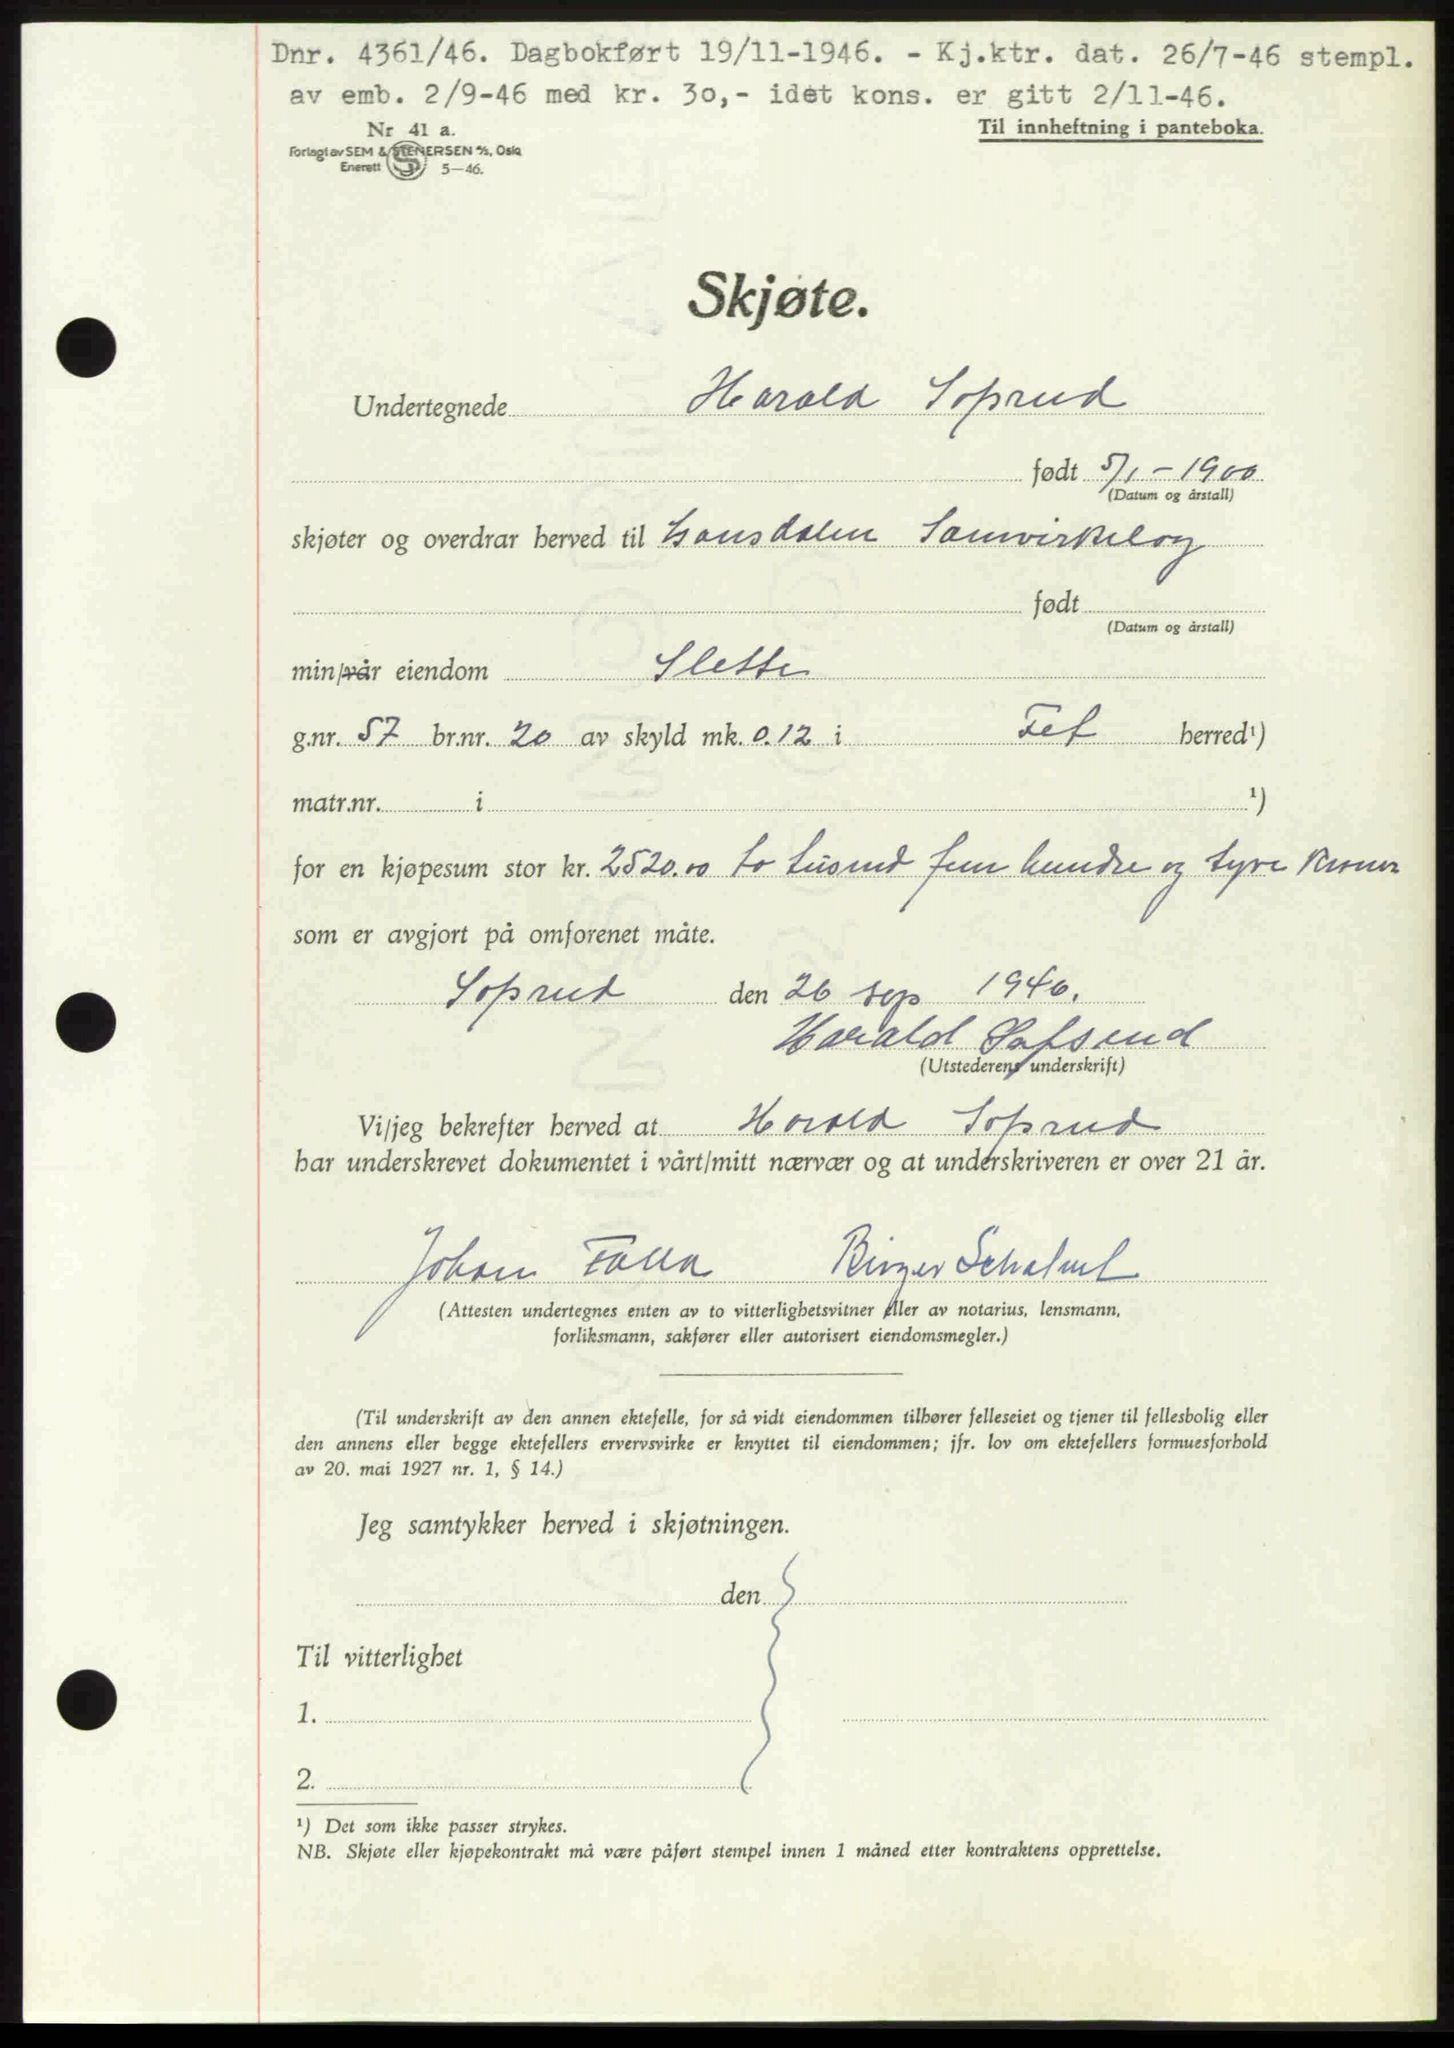 Dnr. 4361/46. Dagbokført 19/11-1946. - Kj.ktr. dat. 26/7-46 stempl.
av emb. 2/9-46 med kr. 30,- idet kons. er gitt 2/11-46.
Nr 41 a.
Til innheftning i panteboka.
Forlagt av SEM & STENERSEN A/S, Oslo
Enerett 5—46.
Skjøte.
Undertegnede Harald Soprud
født 5/1 - 1900
(Datum og årstall)
skjøter og overdrar herved til Gansdalen Samvirkelag
født
(Datum og årstall)
min/vår eiendom Slette
g.nr. 57 br.nr. 20 av skyld mk. 0.12 i Fet herred¹)
matr.nr. i ¹)
for en kjøpesum stor kr. 2520.00 to tusend fem hundre og tyve kroner
som er avgjort på omforenet måte.
Soprud den 26 sep 1946.
Harald
(Utstederens underskrift)
Vi/jeg bekrefter herved at Harald Soprud
har underskrevet dokumentet i vårt/mitt nærvær og at underskriveren er over 21 år.
Johan Falla Birger
(Attesten undertegnes enten av to vitterlighetsvitner eller av notarius, lensmann,
forliksmann, sakfører eller autorisert eiendomsmegler.)
(Til underskrift av den annen ektefelle, for så vidt eiendommen tilhører felleseiet og tjener til fellesbolig eller
den annens eller begge ektefellers ervervsvirke er knyttet til eiendommen; jfr. lov om ektefellers formuesforhold
av 20. mai 1927 nr. 1, § 14.)
Jeg samtykker herved i skjøtningen.
den
Til vitterlighet
1.
2.
¹) Det som ikke passer strykes.
NB. Skjøte eller kjøpekontrakt må være påført stempel innen 1 måned etter kontraktens opprettelse.